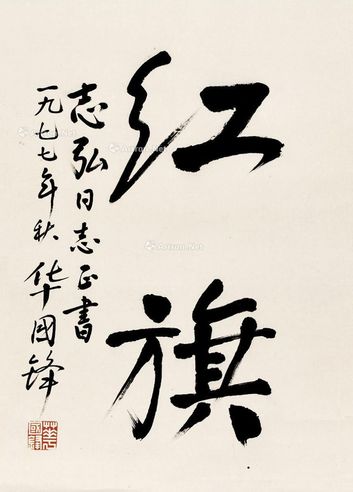 红旗
志弘同志正书
一九七七年秋 华国锋
華國鋒
Artron.Net